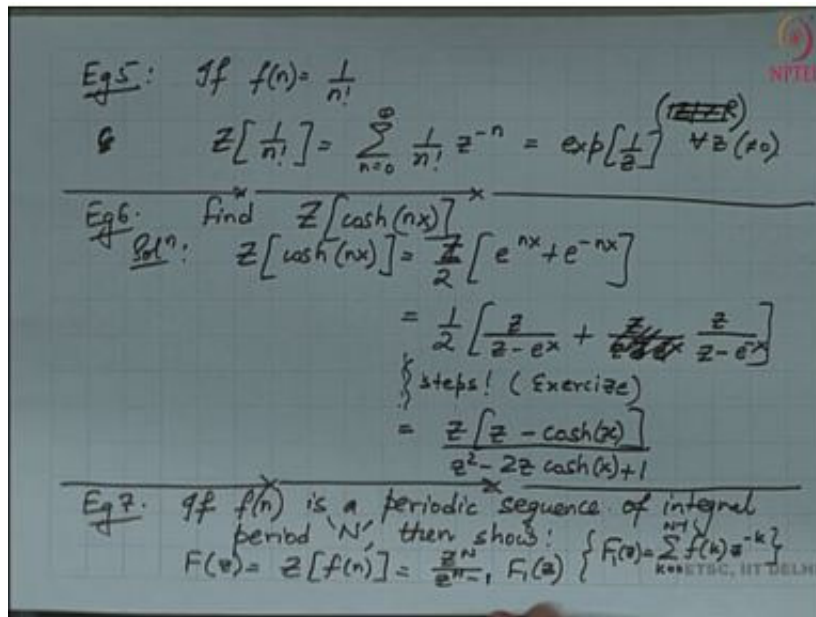 NPTEL
Eg5: If f(n) = 1/n!
Z[1/n!] = ∑_{n=0}^{∞} 1/n! z^{-n} = exp[1/z] ∀ z (≠0)
Eg6. Find Z[cosh(nx)]
Solⁿ: Z[cosh(nx)] = Z/2 [e^{nx} + e^{-nx}]
= 1/2 [z/(z - e^x) + z/(z - e^{-x})]
} steps! (Exercize)
= z[z - cosh(x)] / (z² - 2z cosh(x) + 1)
Eg7. If f(n) is a periodic sequence of integral
period 'N', then show: {F₁(z) = ∑_{k=0}^{N-1} f(k) z^{-k}}
F(z) = Z[f(n)] = z^N/(z^n - 1) F₁(z)
ETSC, IIT DELHI